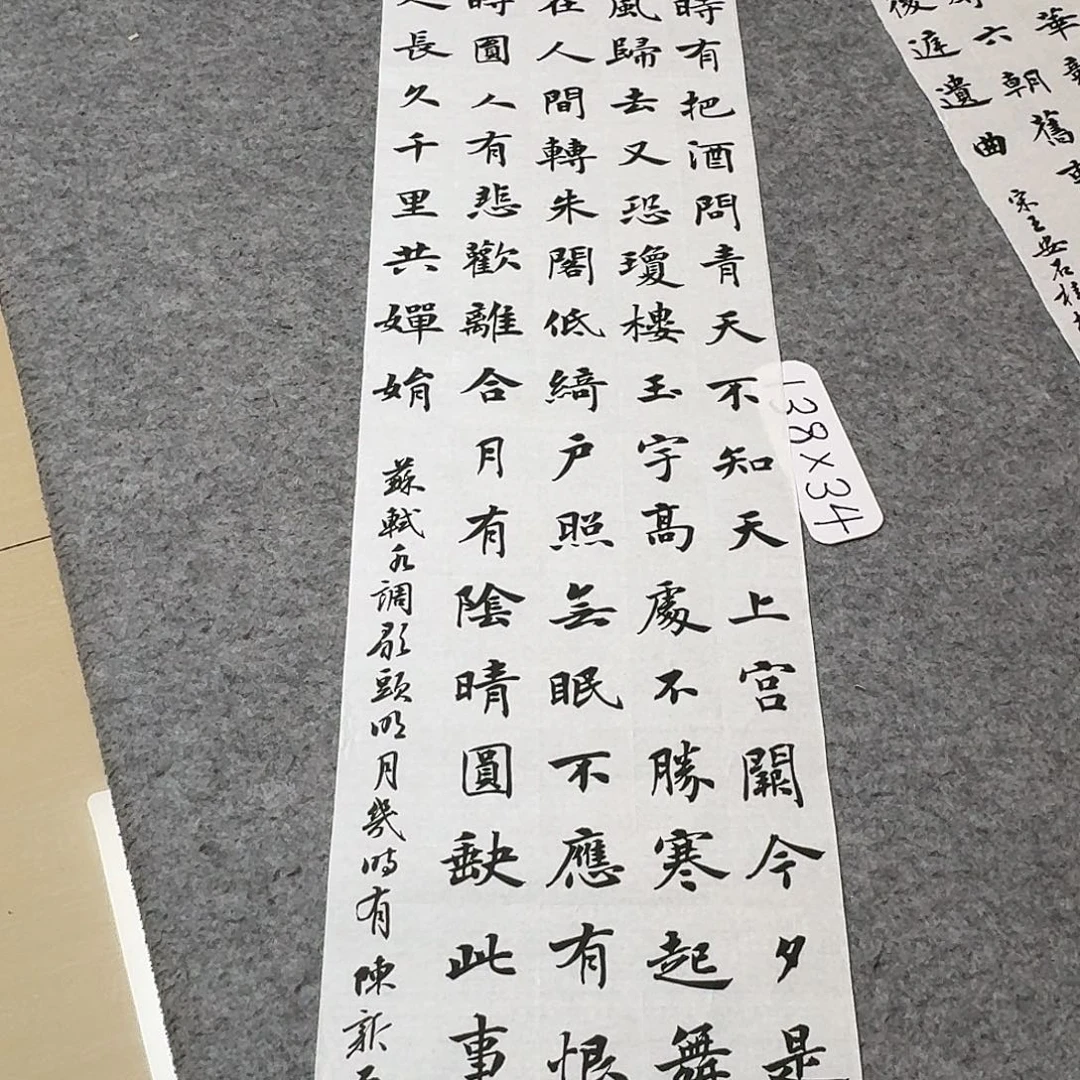 時有把酒問青天不知天上宮闕今夕是
風歸去又恐瓊樓玉宇高處不勝寒起舞
在人間轉朱閣低綺户照無眠不應有恨
時圓人有悲歡離合月有陰晴圓缺此事
長久千里共嬋娟
蘇軾水調歌頭明月幾時有 陳新
138×34
華
六朝舊
遺曲
宋王安石桂